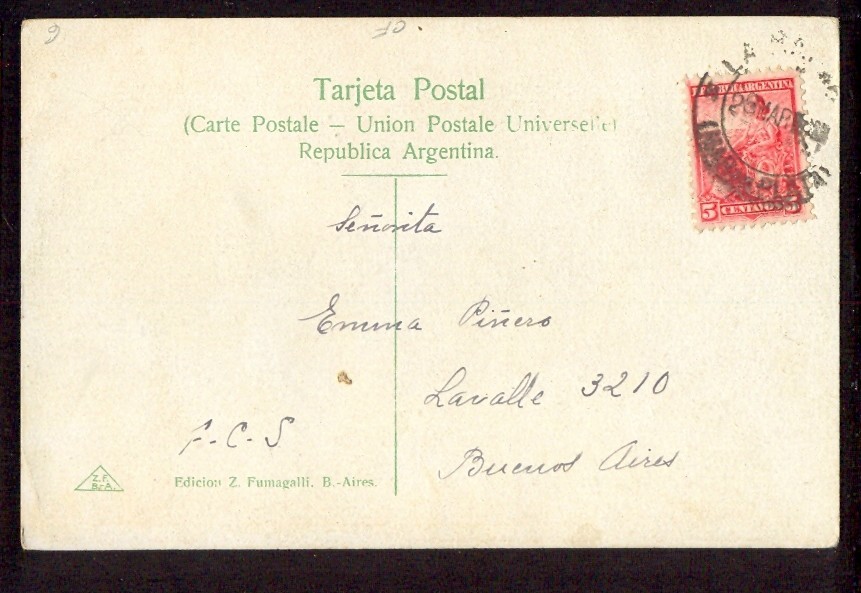 6
10.
Tarjeta Postal
(Carte Postale – Union Postale Universelle)
Republica Argentina.
LA
REPUBLICA ARGENTINA
29 MAR
5 CENTAVOS 5
Señorita
Emma Piñero
Lavalle 3210
F-C-S
Buenos Aires
Z.F.
B.-A.
Edicion Z. Fumagalli. B.-Aires.